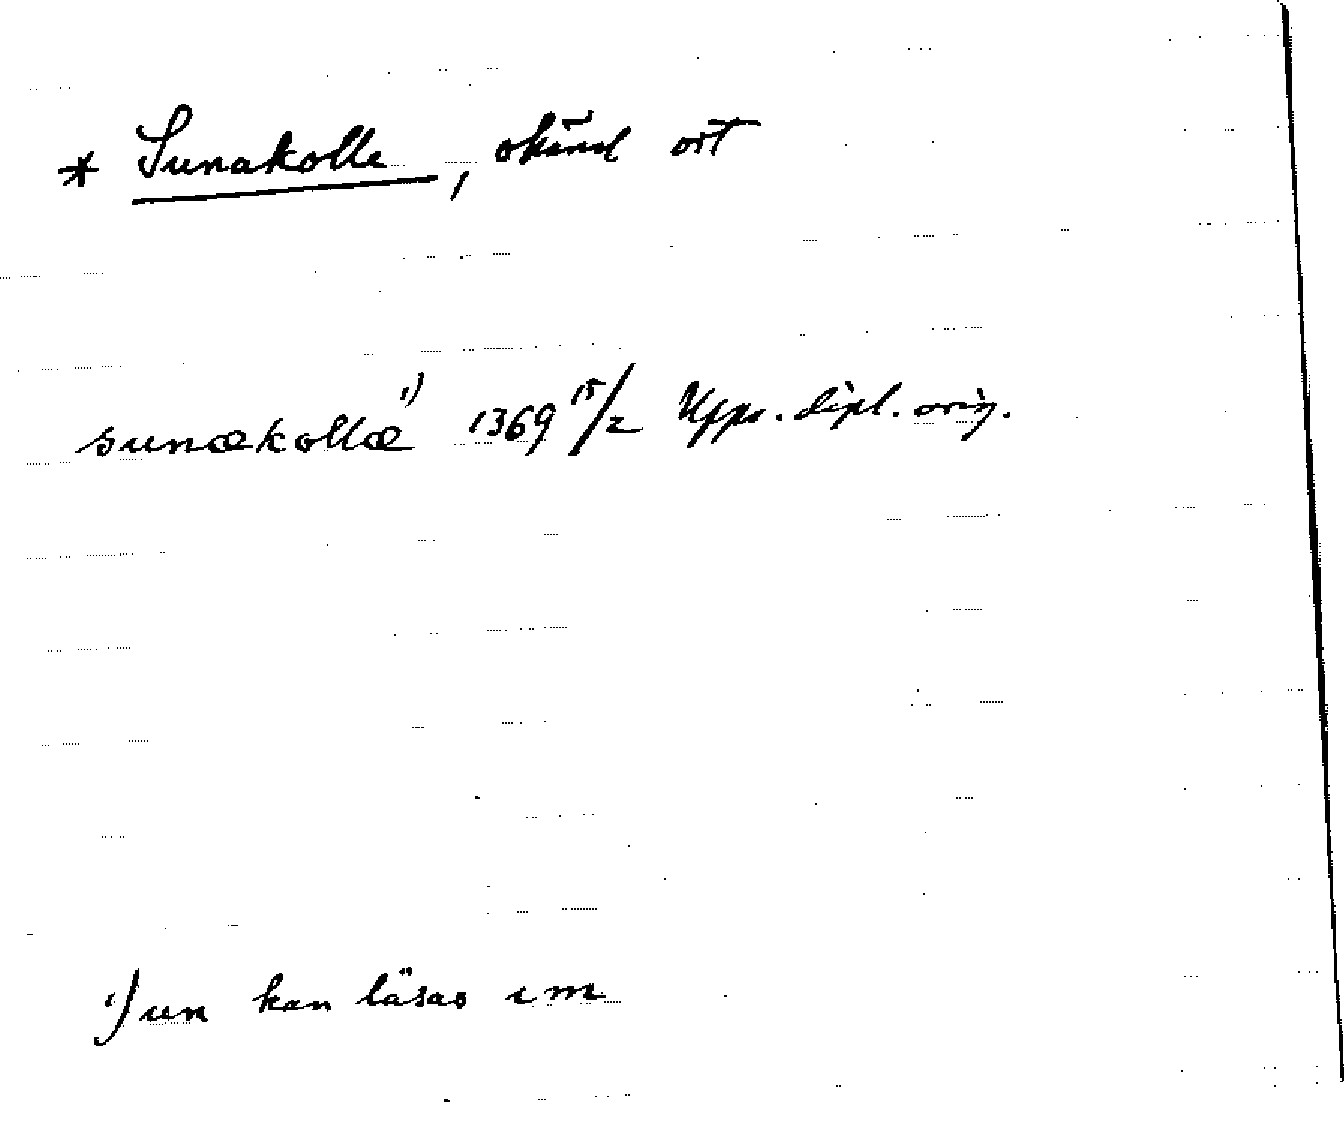 * Sunakolle, okänd ort
sunækollæ 1) 1369 15/2 Upps. dipl. orig.
1) un kan läsas im